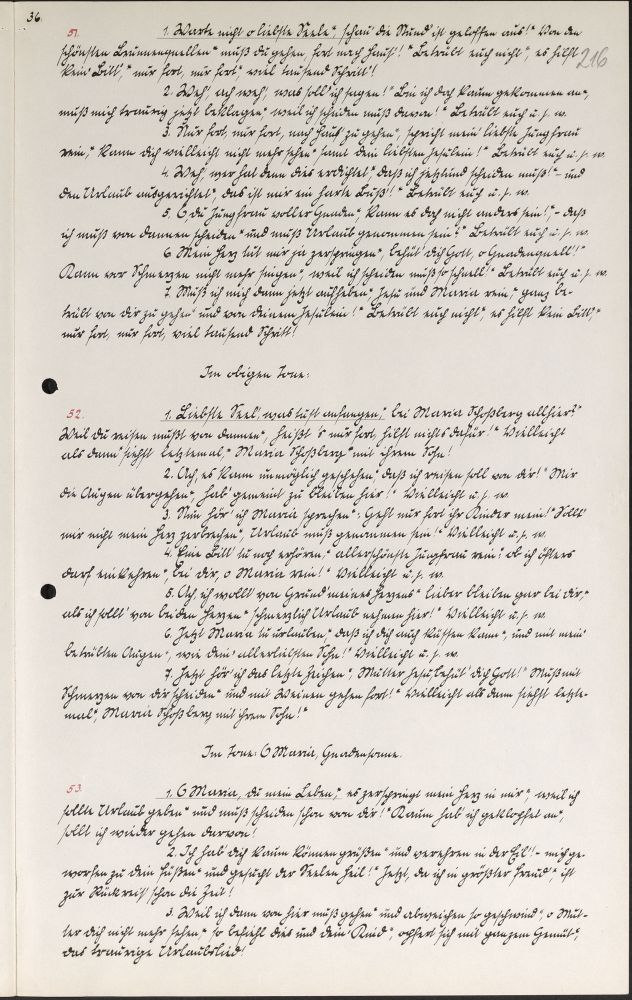 36.
216
51. 1. Warte nicht o liebste Seele*, schau' die Stund' ist geloffen aus!* Von den
schönsten Brunnenquellen* mußt du gehen, fort nach Haus'!* Betrübt euch nicht*, es hilft
kein Bitt',* nur fort, nur fort*, viel tausend Schritt'!
2. Weh', ach weh', was soll ich sagen!* Bin ich doch kaum gekommen an*,
muß mich traurig jetzt beklagen*, weil ich scheiden muß davon!* Betrübt euch u. s. w.
3. Nur fort, nur fort, nach Haus' zu gehen*, spricht mein' liebste Jungfrau
rein,* kann dich vielleicht nicht mehr sehen* samt dem liebsten Jesulein!* Betrübt euch u. s. w.
4. Weh', wer hat denn dies erdichtet*, daß ich jetzund scheiden muß!*- und
den Urlaub ausgerichtet*, das ist mir ein' harte Buß'!* Betrübt euch u. s. w.
5. O, du Jungfrau voller Gnaden*, kann es doch nicht anders sein!,*- daß
ich muß von dannen scheiden* und muß Urlaub genommen sein?* Betrübt euch u. s. w.
6. Mein Herz tut mir ja zerspringen*, behüt' dich Gott, o Gnadenquell'!*
Kann vor Schmerzen nicht mehr singen*, weil ich scheiden muß so schnell!* Betrübt euch u. s. w.
7. Muß ich mich dann jetzt aufheben* Jesu und Maria rein,* ganz be-
trübt von dir zu gehen* und von deinem Jesulein!* Betrübt euch nicht*, es hilft kein Bitt',*
nur fort, nur fort, viel tausend Schritt'!
Im obigen Tone:
52. 1. Liebste Seel', was tust anfangen,* bei Maria Schoßberg allhier?*
Weil du reisen mußt von dannen*, heißt 's nur fort, hilft nichts dafür!* Vielleicht
als dann* siehst letztemal,* Maria Schoßberg* mit ihrem Sohn!
2. Ach, es kann unmöglich geschehen,* daß ich reisen soll von dir!* Mir
die Augen übergehen*, hab' gemeint zu bleiben hier!* Vielleicht u. s. w.
3. Nun hör' ich Maria sprechen*: Geht nur fort ihr Kinder mein!* Sollt'
mir nicht mein Herz zerbrechen*, Urlaub muß genommen sein!* Vielleicht u. s. w.
4. Eine Bitt' tu noch erhören,* allerschönste Jungfrau rein!* ob ich öfters
darf einkehren*, bei dir, o Maria rein!* Vielleicht u. s. w.
5. Ach, ich wollt' von Grund meines Herzens* lieber bleiben gar bei dir,*
als ich sollt' von beiden Herzen* schmerzlich Urlaub nehmen hier!* Vielleicht u. s. w.
6. Jetzt Maria tu erlauben,* daß ich dich auch küssen kann*, und mit mein'
betrübten Augen*, wie dein' allerliebsten Sohn!* Vielleicht u. s. w.
7. Jetzt hör' ich das letzte Zeichen*, Mutter Jesu, behüt' dich Gott!* Muß mit
Schmerzen von dir scheiden* und mit Weinen gehen fort!* Vielleicht als dann siehst letzte-
mal*, Maria Schoßberg mit ihrem Sohn!*
Im Tone: O Maria, Gnadensonne.
53. 1. O Maria, du mein Leben,* es zerspringt mein Herz in mir*, weil ich
sollte Urlaub geben* und muß scheiden schon von dir!* Kaum hab' ich geklopfet an*,
sollt ich wieder gehen darvon!
2. Ich hab' dich kaum können grüßen* und verehren in der Eil'!- mich ge-
worfen zu dein' Füßen* und gesucht der Seelen Heil!* Jetzt, da ich in größter Freud',* ist
zur Rückreis' schon die Zeit!
3. Weil ich dann von hier muß gehen* und abweichen so geschwind*, o Mut-
ter dich nicht mehr sehen,* so befiehl dies und dein Kind*, opfert sich mit ganzem Gemüt*,
das traurige Urlaubslied!